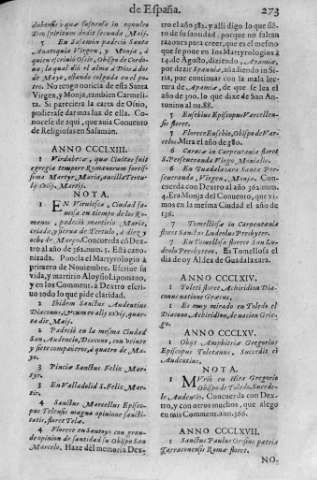 de España.
273
dubensis quæ suspensis in equuleo
Deo spiritum dedit secundo Maij.
5 En Salamin padeciò Santa
Anatoquia Virgen, y Monja, à
quien escriviò Osio, Obispo de Cordo-
va; la qual diò el alma à Dios à dos
de Mayo, estando colgada en el po-
tro. No tengo noticia de esta Santa
Virgen, y Monja, tambien Carmeli-
ta. Si pareciera la carta de Osio,
pudierase dar mas luz de ella. Co-
noscese de aqui, que avia Convento
de Religiosas en Salamin.
ANNO CCCLXIII.
egregia tempore Romanorum fortis-
NOTA.
1 EN
nos, padeciò martirio Maria,
criada, y sierva de Tertulo, à diez y
ocho de Março. Concuerda cõ Dex-
tro el año de 362. num. 1. Està cano-
nizada. Ponela el Martyrologio à
primero de Noviembre. Escrive su
vida, y martirio Aloysio Liponiano,
y en los Comment. à Dextro escri-
vo todo lo que pide claridad.
2 Ibidem Sanctus Audentius
Diaconus,
te Maij.
2 Padeciò en la mesma Ciudad
San Audencio, Diacono, con veinte
y siete compañeros, à quatro de Ma-
yo.
3 Pincia Sanctus Felix Martyr.
3 En Valladolid S. Felix, Mar-
tir.
4 Sanctus Marcellus Episco-
pus Telensis magna opinione sancti-
tatis, floret Telæ.
4 Florece en Santoyo con gran-
de opinion de santidad su Obispo San
Marcelo. Haze del memoria Dex-
tro el año 382. y alli digo lo que siẽ-
to de su santidad; porque no faltan
razones para creer, que es el mesmo
que se pone en los Martyrologios à
14. de Agosto, diziendo, Apameæ,
por dezir
ria, que continuar con la mala lec-
tura de Apamea, de que se lea el
año de 390. lo que dixe de San An-
tonino al nu. 88.
5 Eusebius Episcopus
sis floret.
5 Florece Eusebio, Obispo de
Mira el año de 380.
6 Caracæ in Carpentania floret
S. Perseveranda Virgo, Monialis.
6 En Guadalaxara Santa Per-
severanda, Virgen, Monja. Con-
cuerda con Dextro al año 362. num.
4. Era Monja del Convento, que vi-
mos en la mesma Ciudad el año de
136.
7 Tomellosa in Carpentania
floret Sanctus Ludolus Presbyter.
7 En Tomellosa florece San Lu-
dolo Presbytero. Es Tomellosa el
dia de oy Aldea de Guadalaxara.
ANNO CCCLXIV.
1 Toleti floret Athiridius Dia-
conus natione Græcus.
1 Es muy mirado en Toledo el
Diacono Athiridio, de nacion Grie-
go.
ANNO CCCLXV.
1 Obijt Amphitria Gregorius
Episcopus Toletanus. Succedit ei
Audentius.
NOTA.
1 MVriò en Hita Gregorio
Obispo de Toledo, Sucede-
le Audencio. Concuerda con Dex-
tro, y con otros muchos, que alego
en mis Comment. ann. 366.
ANNO CCCLXVII.
1 Sanctus Paulus Orosius patria
Tarraconensis Romæ floret.
NO-